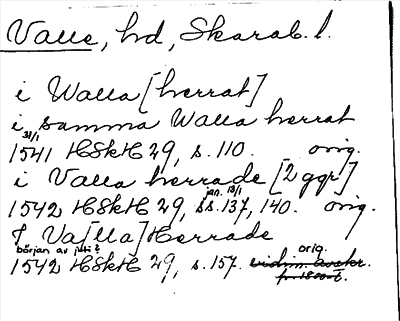 Valle, hd, Skarab. l.
i Walla [herrat]
i samma Walla herrat
31/1
1541 HSkH 29, s. 110. orig.
i Valla herrade [2 ggr]
jan. 13/1
1542 HSkH 29, ss. 137, 140. orig.
J Va[lla] Herrade
början av juli ? orig.
1542 HSkH 29, s. 157. vidim. avskr.
fr. 1800-t.